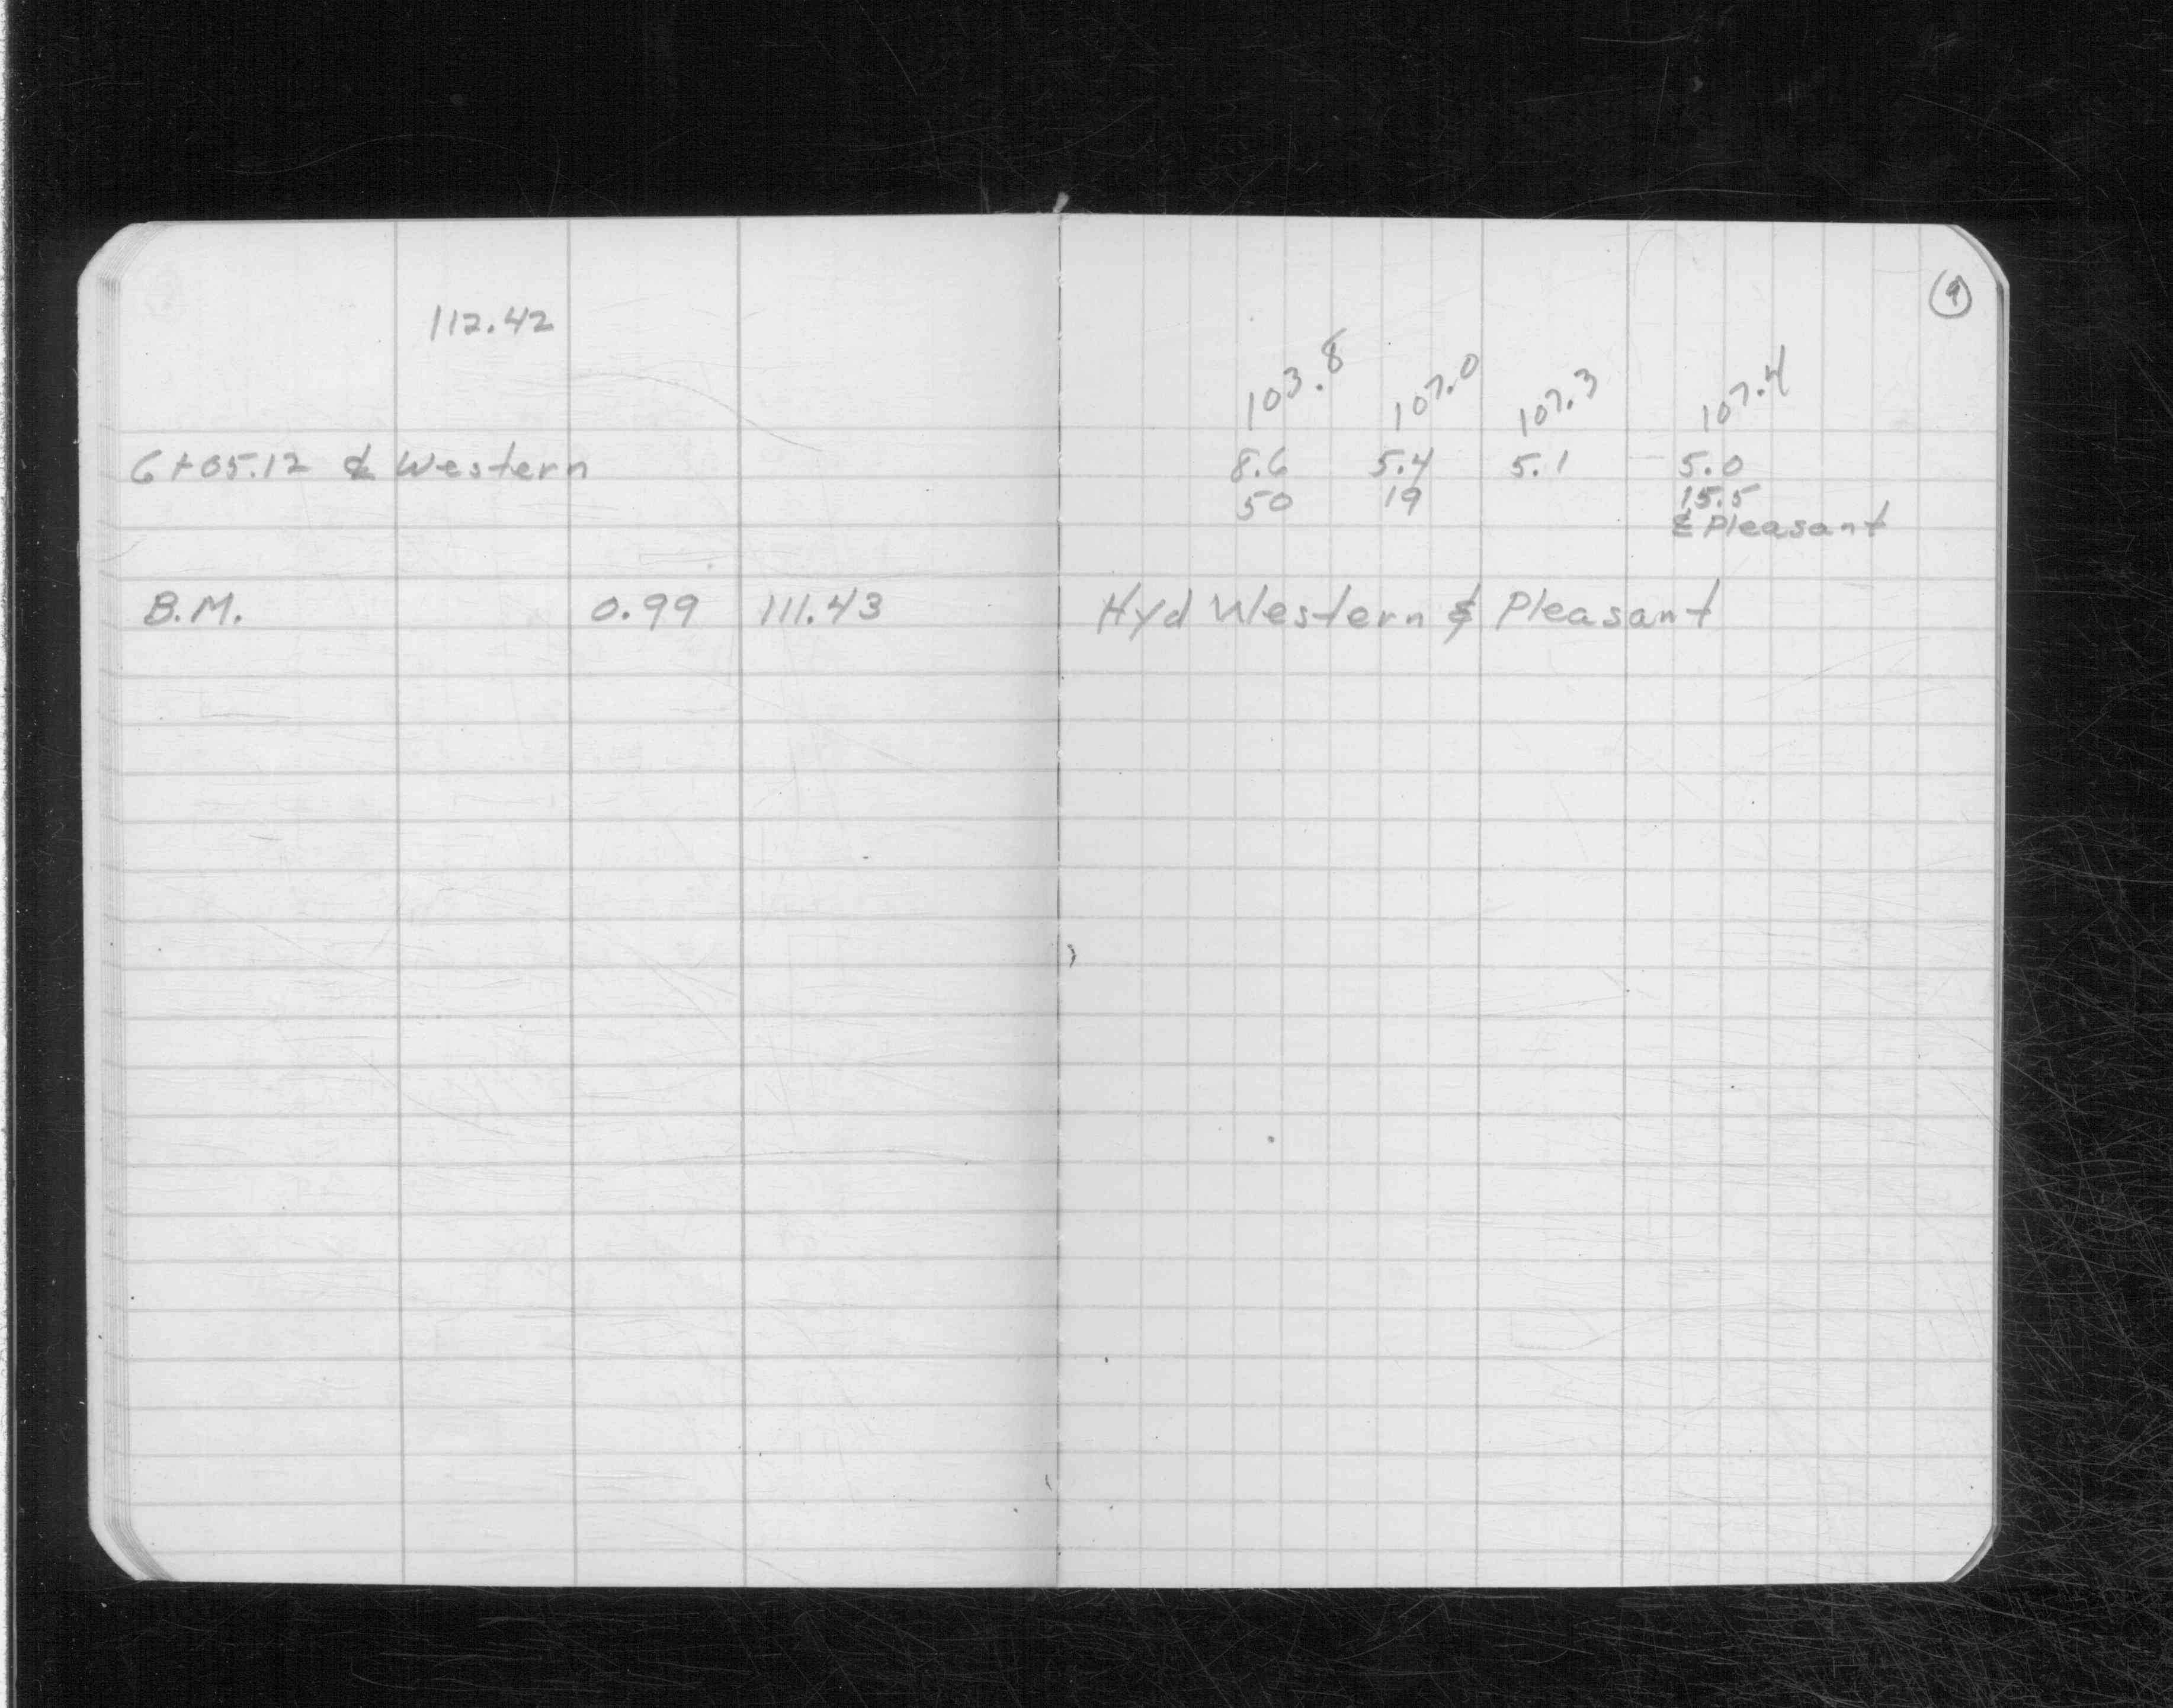 112.42
6+05.12 ⅊ Western
B.M. 0.99 111.43
9
103.8 107.0 107.3 107.4
8.6 5.4 5.1 5.0
50 19 15.5
⅊ Pleasant
Hyd Western & Pleasant